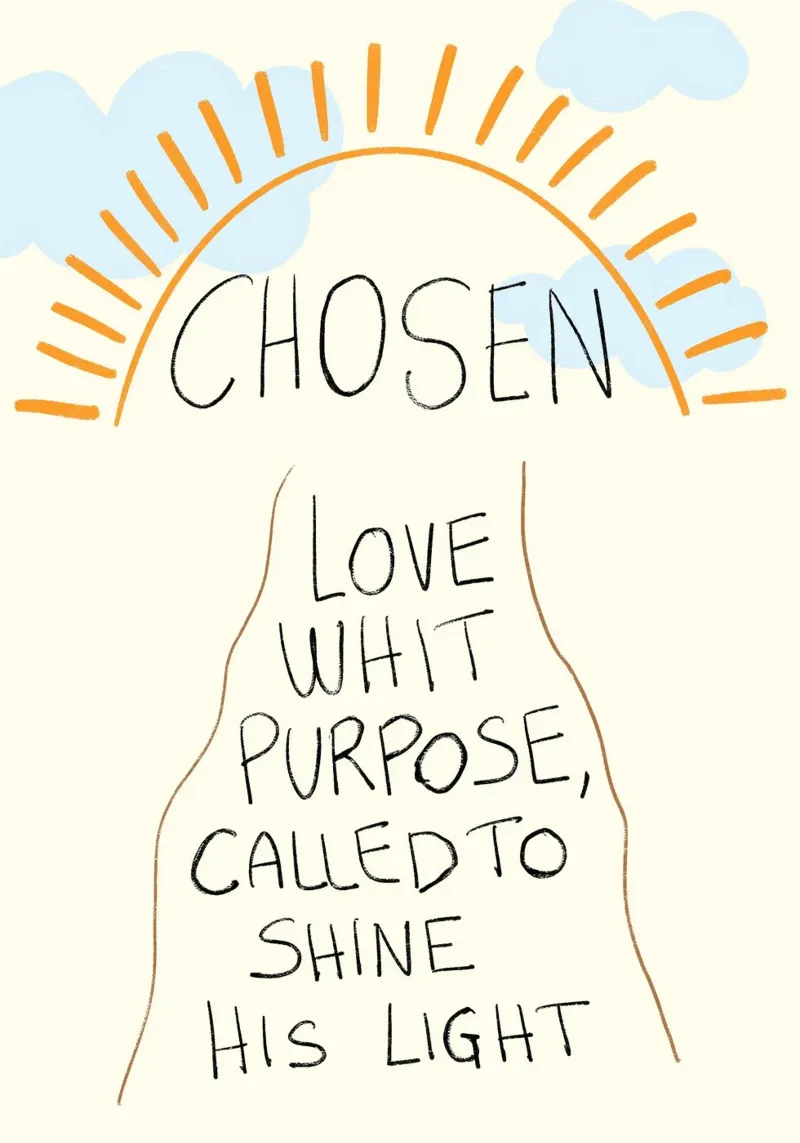 CHOSEN
LOVE
WHIT
PURPOSE,
CALLED TO
SHINE
HIS LIGHT